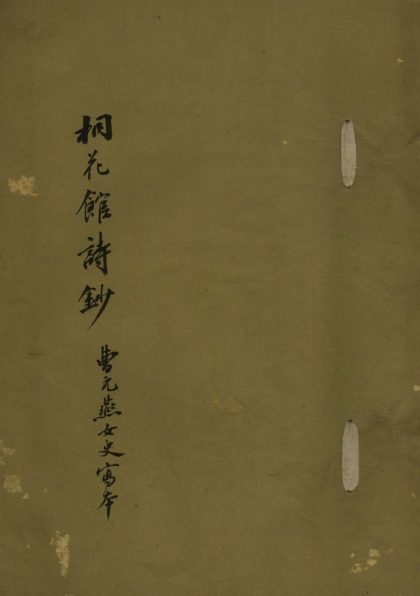 桐花館詩鈔
曹元燕女史寫本